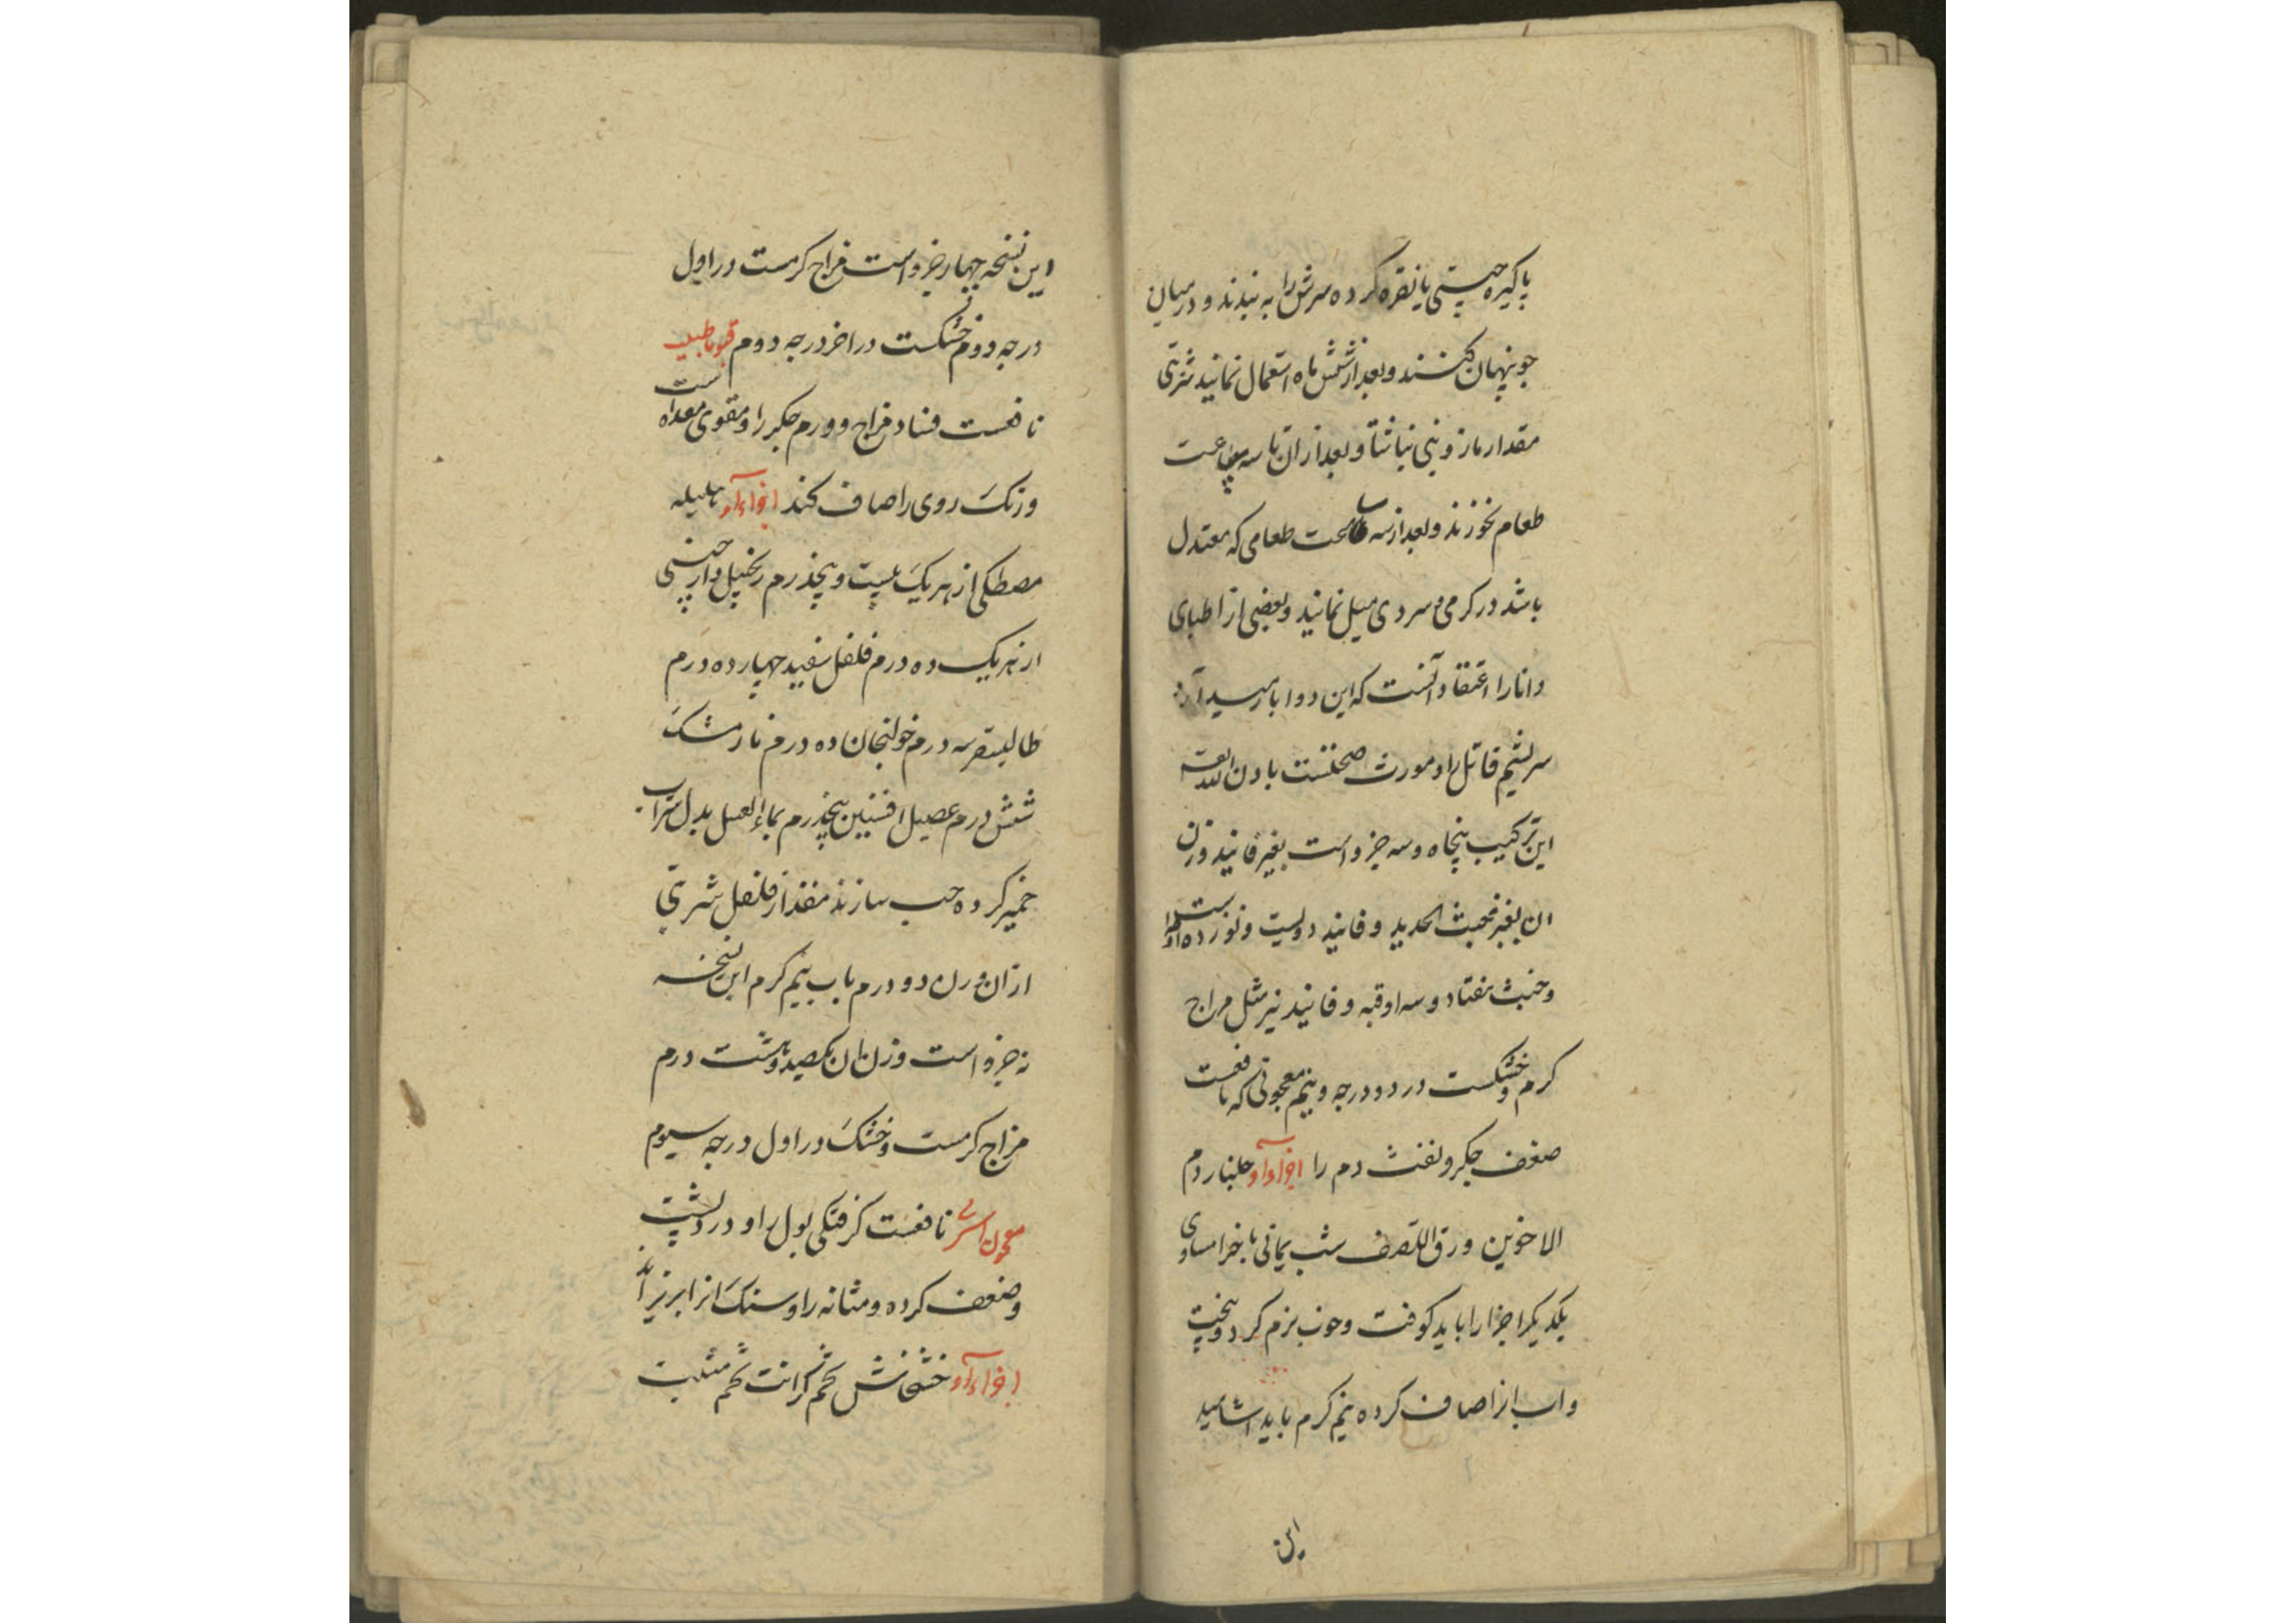 پاکیزه چینی یا نقره کرده سرش را به بندند و در میان
جو پنهان کنند و بعد از شش ماه استعمال نمایند شربتی
مقدار مازونی نباشتا و بعد از ان تا سه ساعت
طعام نخورند و بعد از سه ساعت طعامی که معتدل
باشد در کرمی و سردی میل نمایند و بعضی از اطبای
دانا را اعتقاد آنست که این دوا با
قاتل را و مورث صحتست باذن الله
این ترکیب پنجاه و سه جزو است بغیر فانید وزن
ان بغیر خبث الحدید و فانید دویست و نوزده
و خبث هفتاد و سه اوقیه و فانید نیز مثل مزاج
کرم و خشکست در دو درجه و نیم معجونی که نافعست
ضعف جکر و نفث دم را اجزاء او جلنار دم
الاخوین ورق شب یمانی با جزا مساوی
یکدیکر اجزا را باید کوفت و خوب نرم کرد و پخت
و اب انرا صاف کرده نیم کرم باید اشامید
این
این نسخه چهار جزو است مزاج کرمست در اول
درجه دوم خشکست در اخر درجه دوم
نافعست فساد مزاج و ورم جکر را و مقوی معده است
و رنک روی را صاف کند اجزاء او هلیله
مصطکی از هر یک بیست و پنجدرم زنجبیل دارچینی
از هر یک ده درم فلفل سفید چهارده درم
طالیسفر سه درم خولنجان ده درم نارمشک
شش درم افسنتین پنجدرم بماء العسل بدل شراب
خمیر کرده حب سازند مقدار فلفل شربتی
از ان وزن دو درم باب نیم کرم این نسخه
نه جزو است وزن ان یکصد و هشت درم
مزاج کرمست و خشک در اول درجه سیوم
معجون نافعست کرفتکی بول را و درد پشت
و ضعف کرده و مثانه را و سنک انرا بریزاند
اجزاء او خشخاش تخم تخم